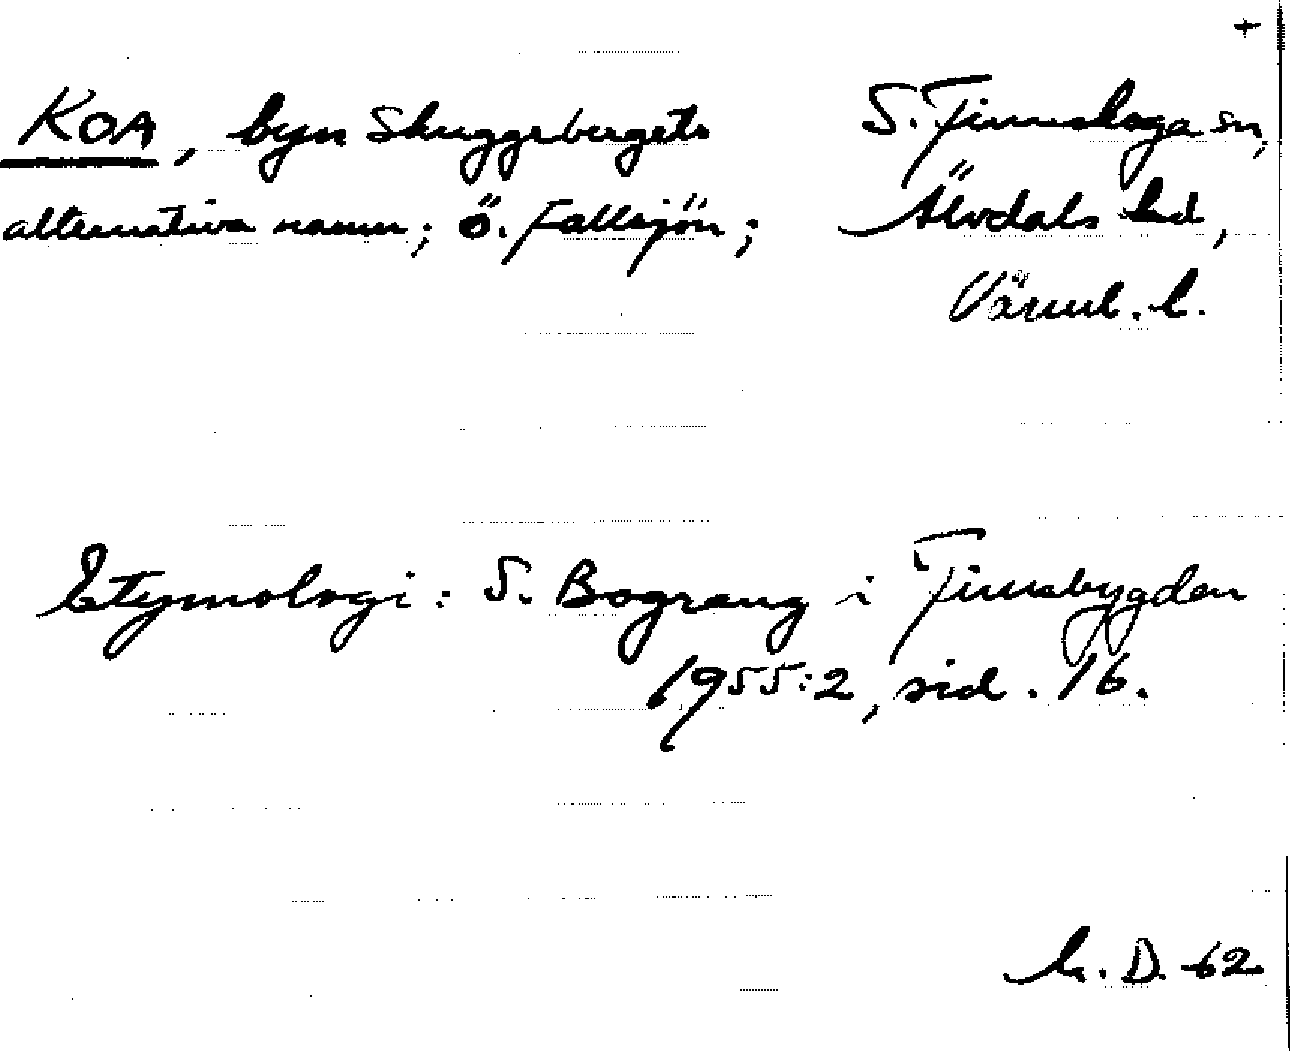 +
KOA, byn Skuggebergets S. Finnskoga sn,
alternativa namn; Ö. Fallsjön; Älvdals hd,
Värml. l.
Etymologi: S. Bograng i Finnsbygden
1955:2, sid. 16.
D. 62